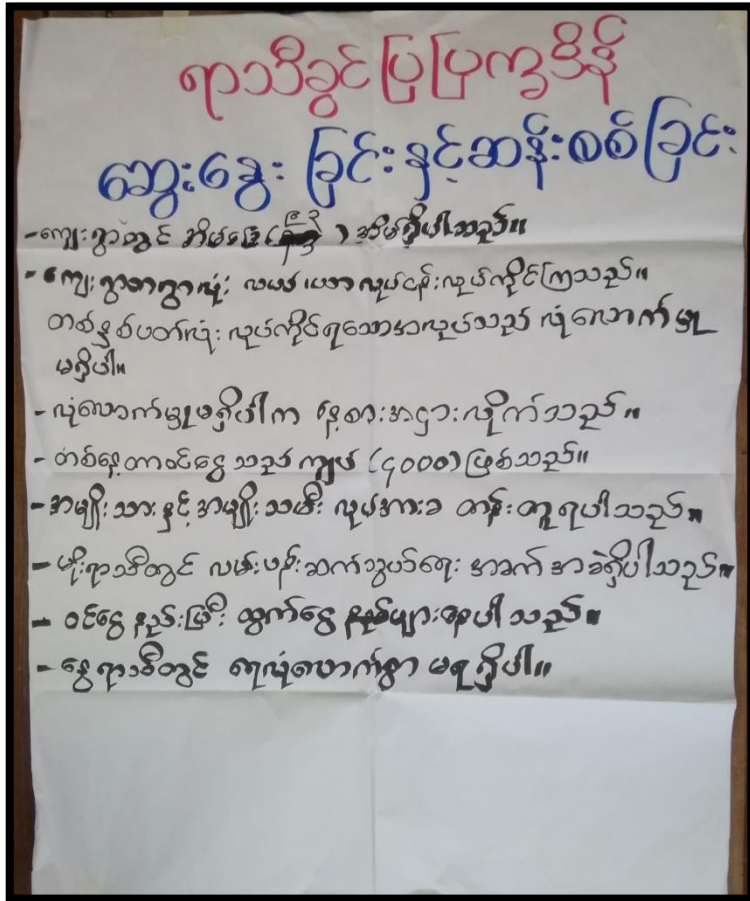 ရာသီခွင်ပြပြက္ခဒိန်
ဆွေးနွေးခြင်းနှင့်ဆန်းစစ်ခြင်း
-ကျေးရွာတွင် အိမ်ခြေ(၉၃) အိမ်ရှိပါသည်။
-ကျေးရွာတရွာလုံး လယ်ယာလုပ်ငန်းလုပ်ကိုင်ကြသည်။
တစ်နှစ်ပတ်လုံး လုပ်ကိုင်ရသောအလုပ်သည် လုံလောက်မှု
မရှိပါ။
-လုံလောက်မှုမရှိပါက နေ့စားအငှားလိုက်သည်။
-တစ်နေ့တာဝင်ငွေသည် ကျပ် (၄၀၀၀)ဖြစ်သည်။
-အမျိုးသားနှင့်အမျိုးသမီး လုပ်အားခ တန်းတူရပါသည်။
-မိုးရာသီတွင် လမ်းပန်းဆက်သွယ်ရေး အခက်အခဲရှိပါသည်။
- ဝင်ငွေ နည်းပြီး ထွက်ငွေ များနေပါသည်။
-နွေရာသီတွင် ရေလုံလောက်စွာ မရရှိပါ။